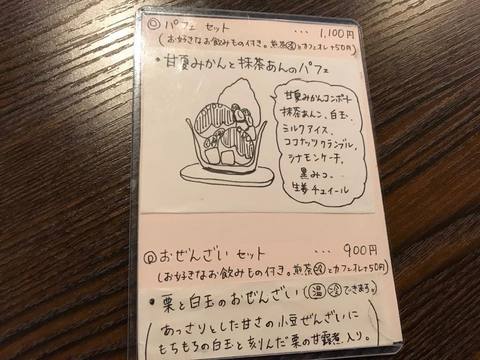 ◎ パフェ セット ... 1,100円
(お好きなお飲みもの付き。煎茶㊄とカフェオレ+50円)
・甘夏みかんと抹茶あんのパフェ
甘夏みかんコンポート
抹茶あんこ、白玉、
ミルクアイス、
ココナッツクランブル、
シナモンケーキ、
黒みつ、
生姜チュイール
◎ おぜんざい セット ... 900円
(お好きなお飲みもの付き。煎茶 とカフェオレ+50円)
・栗と白玉のおぜんざい (温 冷 できます。)
(あっさりとした甘さの小豆ぜんざいに
もちもちの白玉と刻んだ栗の甘露煮入り。)